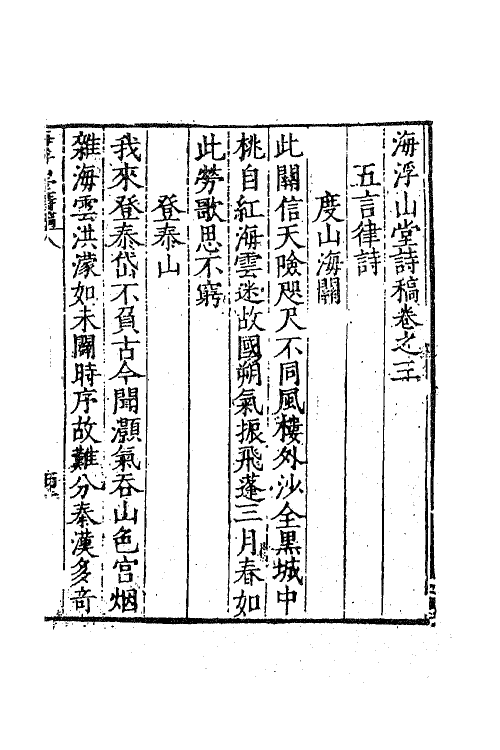 海浮山堂詩稿卷之三
五言律詩
度山海關
此關信天險咫尺不同風樓外沙全黑城中
桃自紅海雲迷故國朔氣振飛蓬三月春如
此勞歌思不窮
登泰山
我來登泰岱不負古今聞灝氣吞山色官烟
雜海雲洪濛如未闢時序故難分秦漢多奇